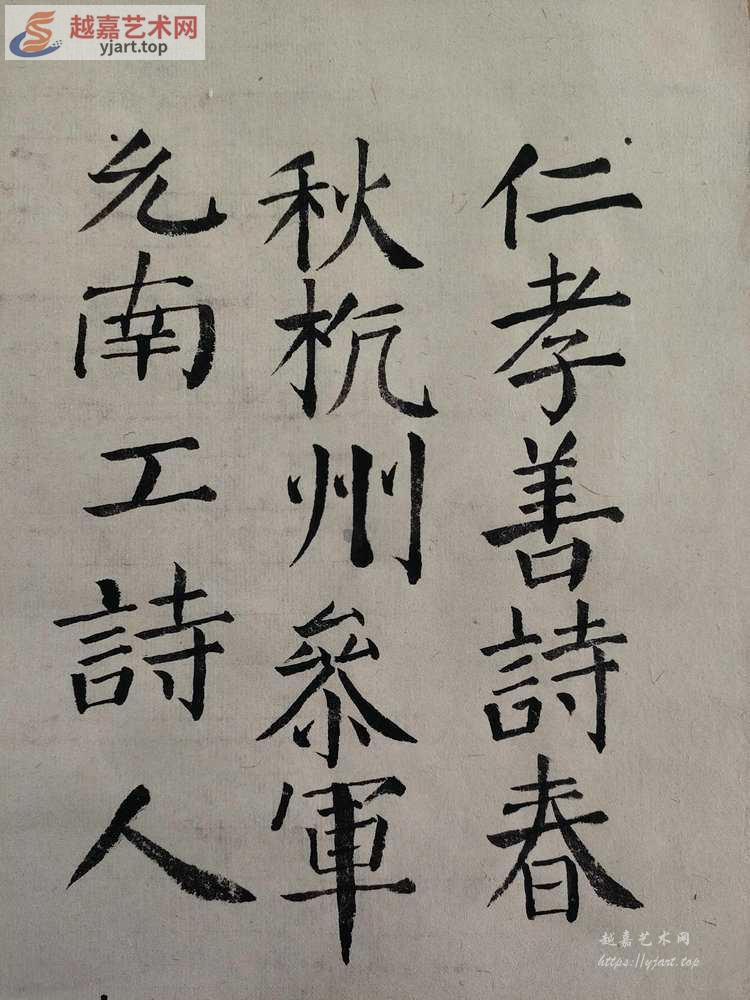 越嘉艺术网
yjart.top
仁孝善詩春
秋杭州叅軍
允南工詩人
越嘉艺术网
https://yjart.top